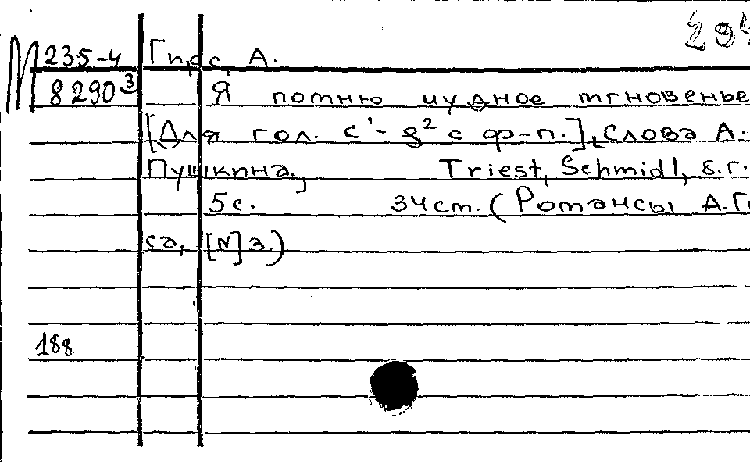 М 235-4 Гирс, А.
8290³ Я помню чудное мгновенье
[Для гол. c'-g² с ф-п.], Слова А.
Пушкина. Triest, Schmidl, б.г.
5с. 34см. (Романсы А. Ги
са, [N] 3.)
188